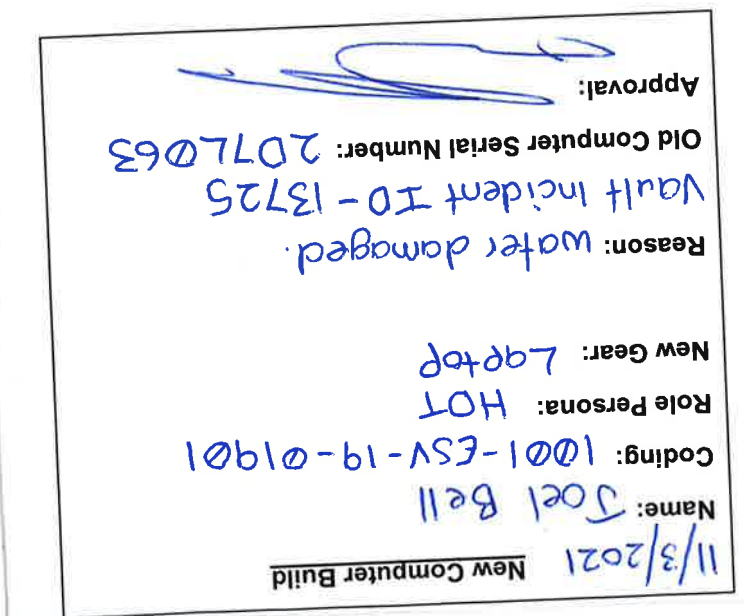 11/3/2021 New Computer Build
Name: Joel Bell
Coding: 1001-ESV-19-01901
Role Persona: HOT
New Gear: Laptop
Reason: water damaged.
Vault Incident ID-13725
Old Computer Serial Number: 207L063
Approval: